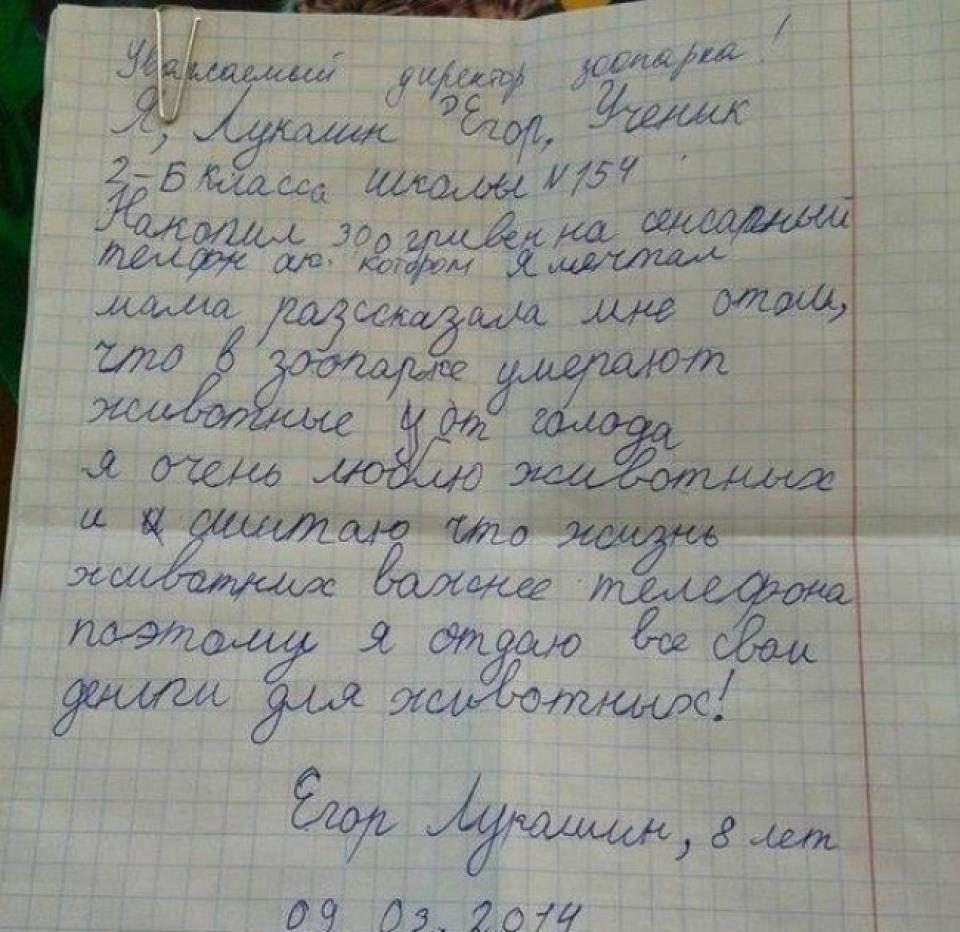 Уважаемый директор зоопарка!
Я, Лукашин Егор, Ученик
2-Б класса школы N 154
Накопил 300 гривен на сенсарный
телфон ою котором я мечтал
мама разссказала мне отом,
что в зоопарке умерают
животные от голода
я очень люблю животных
и считаю что жизнь
животних важнее телефона
поэтому я отдаю все свои
деньги для животных!
Егор Лукашин, 8 лет
09. 03. 2014